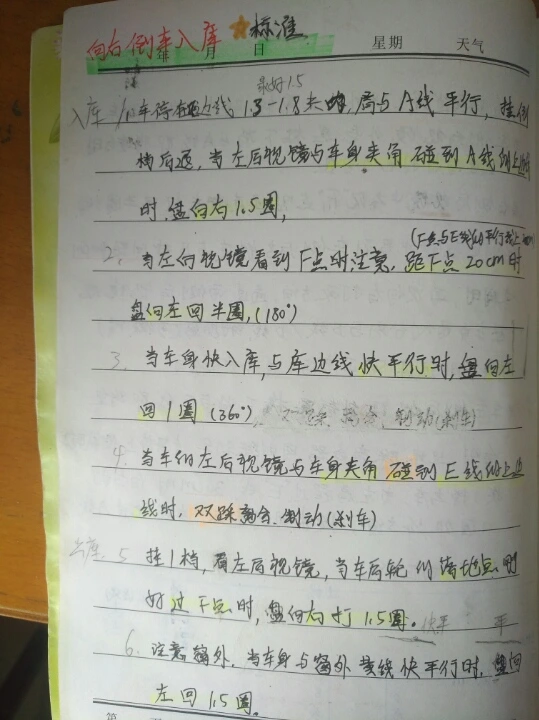 向右倒车入库 标准
月 日 星期 天气
最好1.5
入库 1.车停在距边线1.3-1.8米处,肩与A线平行,挂倒
档后退,当左后视镜与车身夹角碰到A线的上边
时,盘向右1.5圈,
(F点与E线的平行线上
2、当左后视镜看到F点时注意,距F点20cm时
盘向左回半圈,(180°)
3、当车身快入库,与库边线快平行时,盘向左
回1圈(360°)。双踩离合、制动(刹车)
4、当车的左后视镜与车身夹角碰到E线的上边
线时,双踩离合、制动(刹车)
出库、5 挂1档,看左后视镜,当车后轮的落地点刚
好过F点时,盘向右打1.5圈。
6、注意窗外,当车身与窗外黄线快平行时,盘向
左回1.5圈。
第